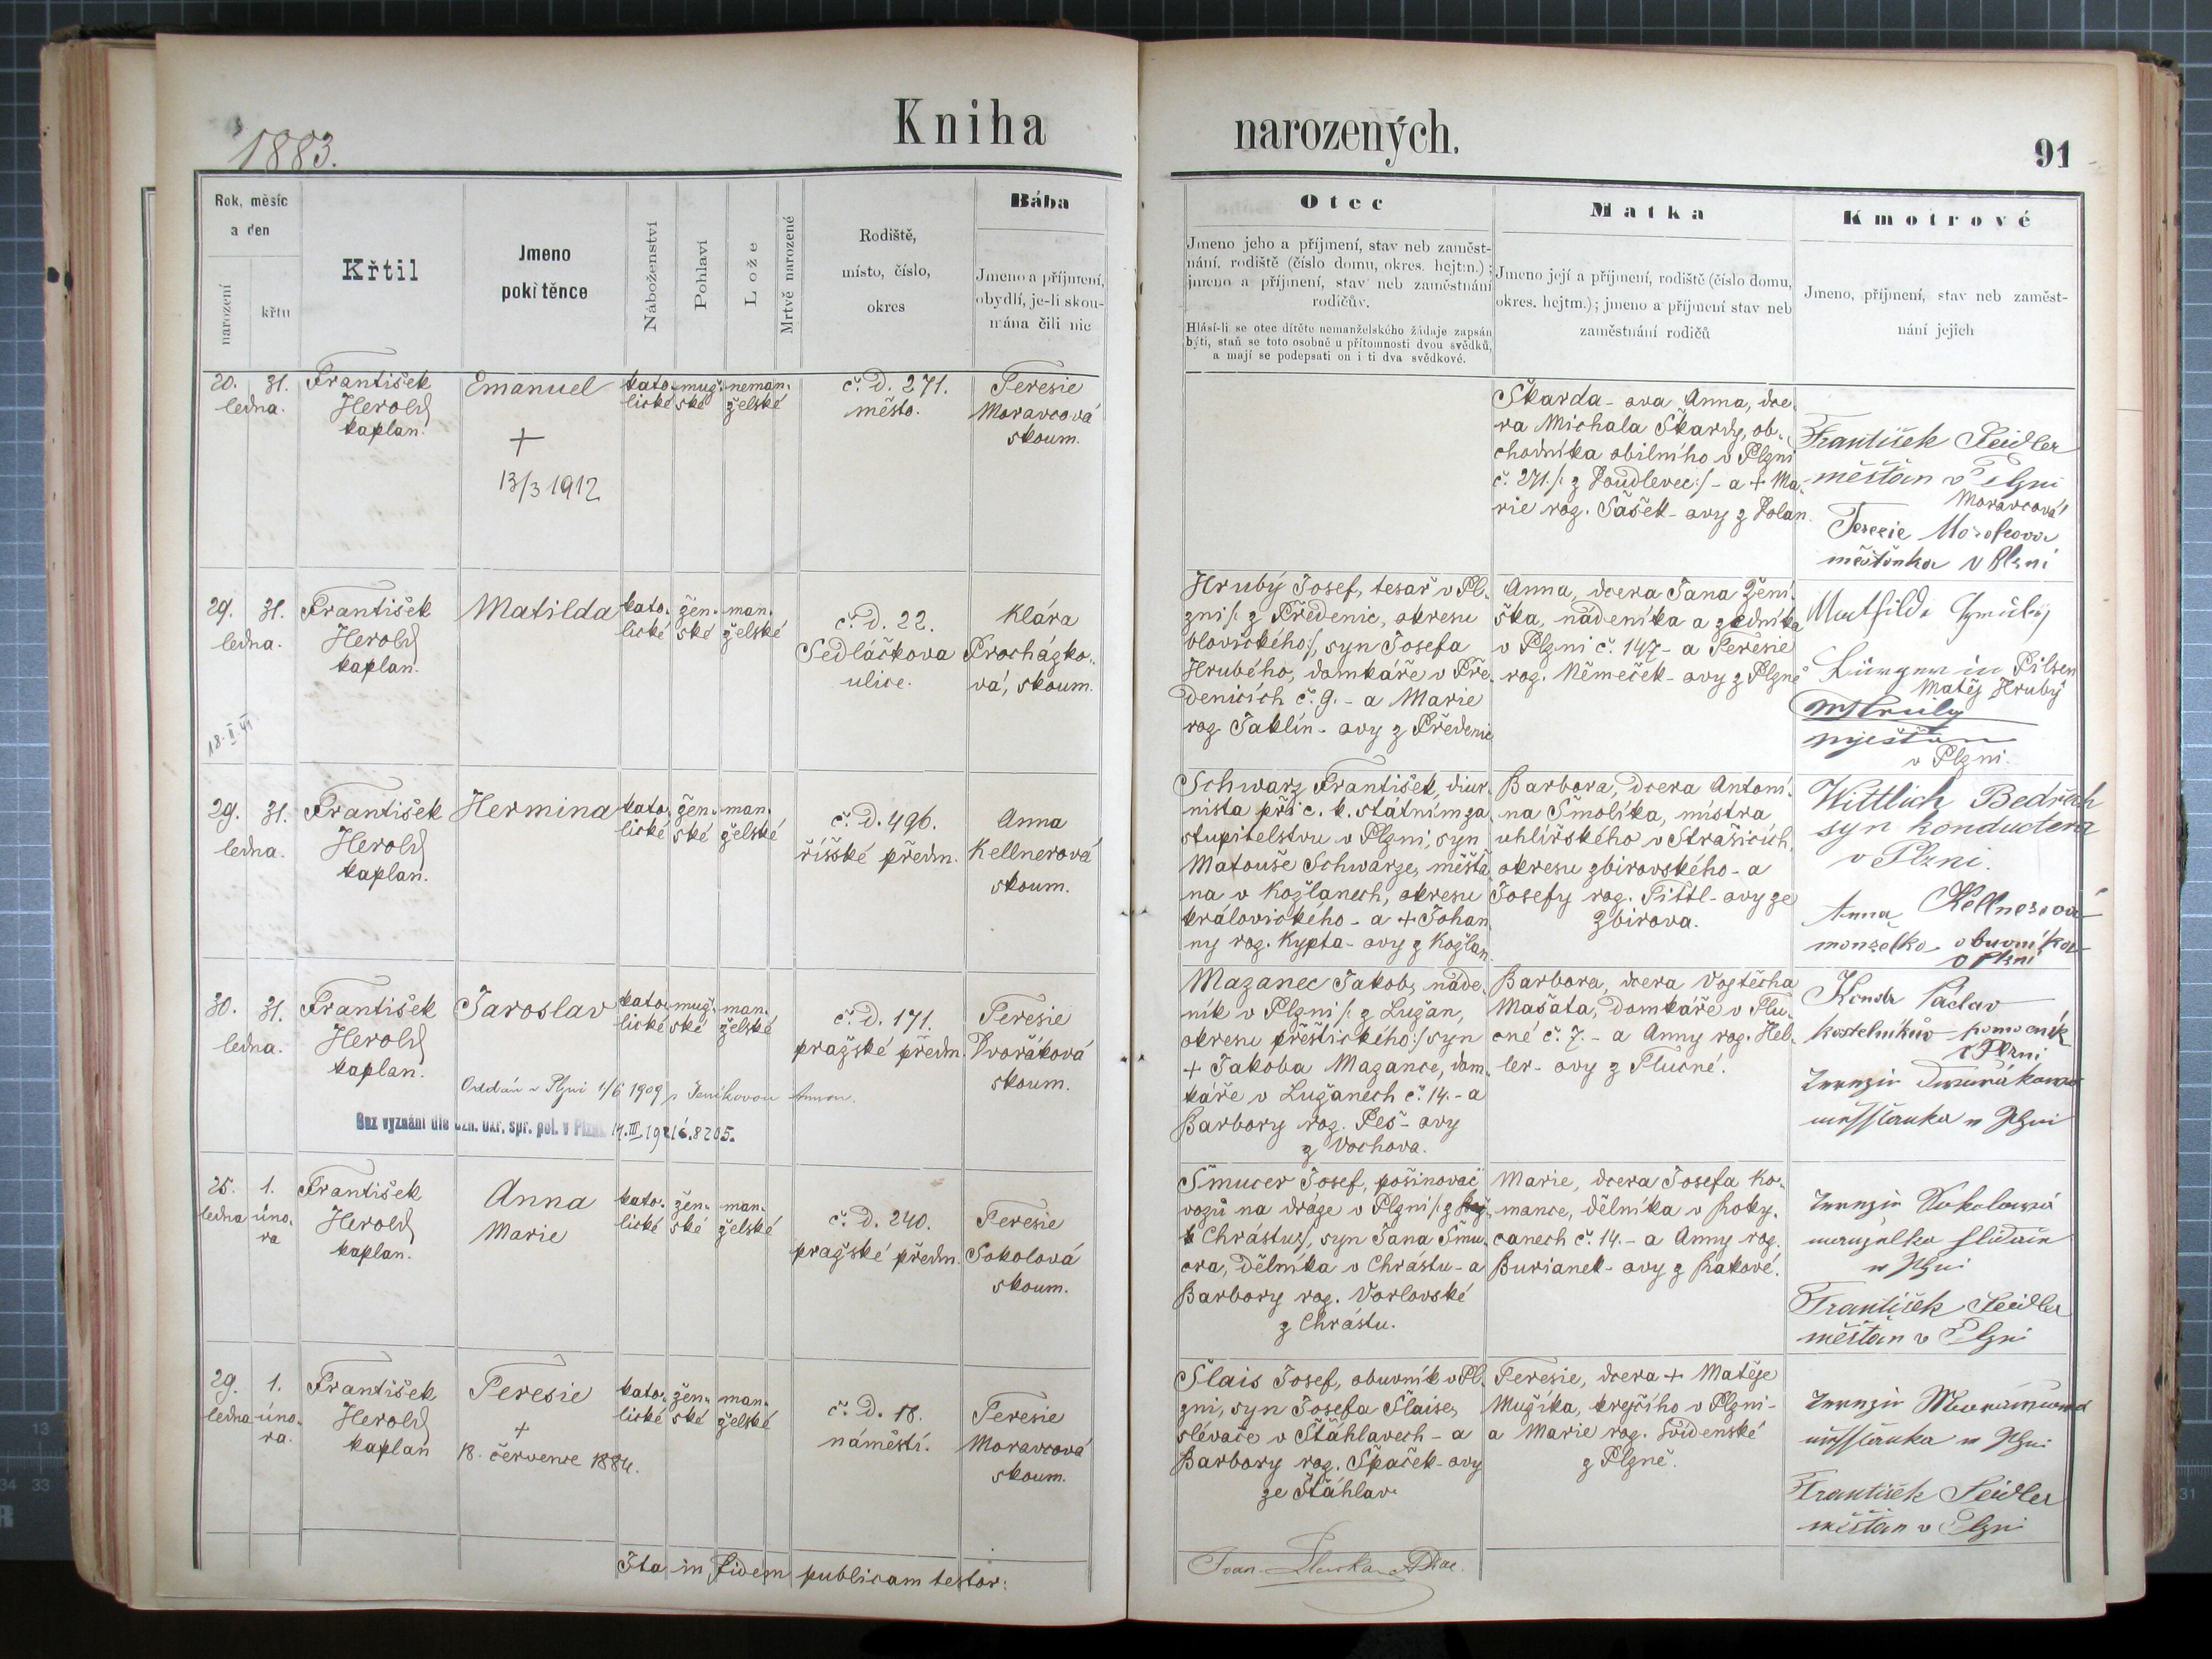 1883.
Kniha
narozených.
91
Rok, měsíc
a den
narození
křtu
Křtil
Jmeno
pokřtěnce
Náboženství
Pohlaví
Lože
Mrtvě narozené
Rodiště,
místo, číslo,
okres
Bába
Jmeno a příjmení,
obydlí, je-li skou-
mána čili nic
Otec
Jmeno jeho a příjmení, stav neb zaměst-
nání, rodiště (číslo domu, okres. hejtm.);
jmeno a příjmení, stav neb zaměstnání
rodičův.
Hlásí-li se otec dítěte nemanželského žádaje zapsán
býti, staň se toto osobně u přítomnosti dvou svědků,
a mají se podepsati on i ti dva svědkové.
Matka
Jmeno její a příjmení, rodiště (číslo domu,
okres. hejtm.); jmeno a příjmení stav neb
zaměstnání rodičů
Kmotrové
Jmeno, příjmení, stav neb zaměst-
nání jejich
20. 31.
ledna.
František
Herold
kaplan.
Emanuel
+
13/3 1912
kato-
lické
muž-
ské
neman-
želské
č. d. 271.
město.
Teresie
Moravcová
skoum.
Škarda-ova Anna, dce-
ra Michala Škardy, ob-
chodníka obilního v Plzni
č. 271 /: z Doudlevec :/ - a + Ma-
rie roz. Šašek-ovy z Dolan.
František Seidler
měšťan v Plzni
Moravcová
Teresie
měštěnka v Plzni
29. 31.
ledna.
18.II.
František
Herold
kaplan.
Matilda
kato-
lické
žen-
ské
man-
želské
č. d. 22.
Sedláčkova
ulice.
Klára
Procházko-
vá, skoum.
Hrubý Josef, tesař v Pl-
zni /: z Předenic, okresu
blovického :/, syn Josefa
Hrubého, domkáře v Pře-
denicích č. 9. - a Marie
roz. Jaklín-ovy z Předenic
Anna, dcera Jana Žení-
ška, nádeníka a zedníka
v Plzni č. 147 - a Teresie
roz. Němeček-ovy z Plzně
in Pilsen
Matěj Hrubý
v Plzni.
29. 31.
ledna.
František
Herold
kaplan.
Hermina
kato-
lické
žen-
ské
man-
želské
č. d. 496.
říšské předm.
Anna
Kellnerová
skoum.
Schwarz František, diur-
nista při c. k. státním za-
stupitelstvu v Plzni, syn
Matouše Schwarze, měšťa-
na v Kožlanech, okresu
královického - a + Johan-
ny roz. Kypta-ovy z Kožlan
Barbora, dcera Antoní-
na Smolíka, mistra
uhlířského v Strašicích,
okresu zbirovského - a
Josefy roz. Tittl-ovy ze
Zbirova.
Wittlich Bedřich
syn konductera
v Plzni.
Anna Kellnerová
manželka obuvníka
v Plzni
30. 31.
ledna.
František
Herold
kaplan.
Jaroslav
kato-
lické
muž-
ské
man-
želské
č. d. 171.
pražské předm.
Teresie
Dvořáková
skoum.
Oddán v Plzni 1/6 1909 s Jeníkovou Annou.
Bez vyznání dle ozn. okr. spr. pol. v Plzni
Mazanec Jakob, náde-
ník v Plzni /: z Lužan,
okresu přeštického :/ syn
+ Jakoba Mazance, dom-
káře v Lužanech č. 14. - a
Barbory roz. Peš-ovy
z Vochova.
Barbora, dcera Vojtěcha
Mašata, domkáře v Plu-
cné č. 7. - a Anny roz. Hel-
ler-ovy z Plucné.
Václav
kostelníkův pomocník
v Plzni
25. 1.
ledna úno-
ra
František
Herold
kaplan.
Anna
Marie
kato-
lické
žen-
ské
man-
želské
č. d. 240.
pražské předm.
Teresie
Sokolová
skoum.
Šmucer Josef, pošinovač
vozů na dráze v Plzni /: z
Chrástu :/, syn Jana Šmu-
cra, dělníka v Chrástu - a
Barbory roz. Vorlovské
z Chrástu.
Marie, dcera Josefa Ko-
mance, dělníka v Roky-
canech č. 14. - a Anny roz.
Burianek-ovy z Rakové.
Sokolová
František Seidler
měšťan v Plzni
29. 1.
ledna úno-
ra.
František
Herold
kaplan
Teresie
+
18. července 1884.
kato-
lické
žen-
ské
man-
želské
č. d. 18.
náměstí.
Teresie
Moravcová
skoum.
Šlais Josef, obuvník v Pl-
zni, syn Josefa Šlaise,
slévače v Šťáhlavech - a
Barbory roz. Špaček-ovy
ze Šťáhlav
Teresie, dcera + Matěje
Mužíka, krejčího v Plzni -
a Marie roz. Svidenské
z Plzně.
František Seidler
měšťan v Plzni
Ita in fidem publicam testor: